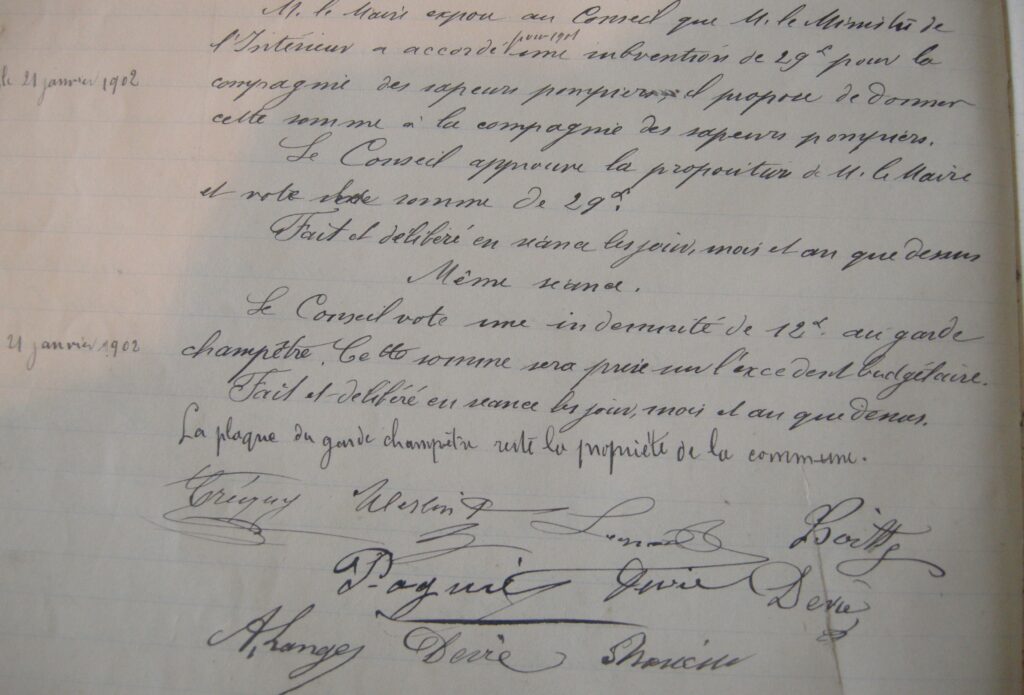 M. le Maire expose au Conseil que M. le Ministre de
l'Intérieur a accordé pour 1901 une subvention de 29f pour la
le 21 janvier 1902
compagnie des sapeurs pompiers, il propose de donner
cette somme à la compagnie des sapeurs pompiers.
Le Conseil approuve la proposition de M. le Maire
et vote somme de 29f.
Fait et délibéré en séance les jour, mois et an que dessus
Même séance.
Le Conseil vote une indemnité de 12f. au garde
21 janvier 1902
champêtre. Cette somme sera prise sur l'excédent budgétaire.
Fait et délibéré en séance les jour, mois et an que dessus.
La plaque du garde champêtre reste la propriété de la commune.
Devie Devie
A. Lange Devie